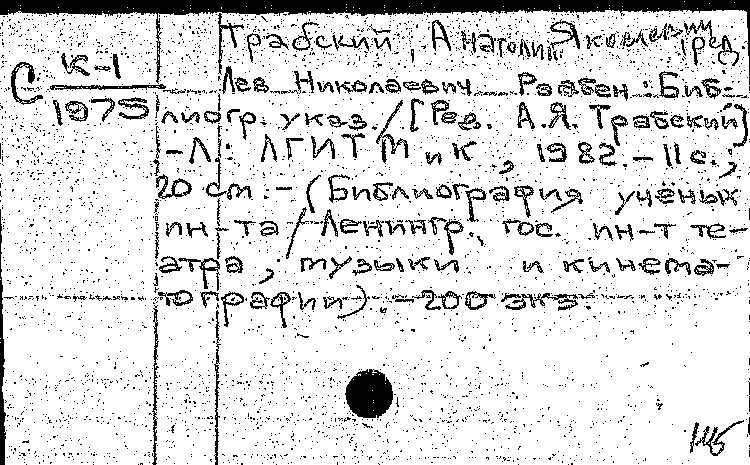 Трабский, Анатолий Яковлевич, ред.
С К-1
1975
Лев Николаевич Раабен: Биб-
лиогр. указ. / [Ред. А.Я. Трабский]
- Л.: ЛГИТМиК, 1982. - 11 с.;
20 см. - (Библиография учёных
ин-та / Ленингр. гос. ин-т те-
атра, музыки и кинема-
тографии). - 200 экз.